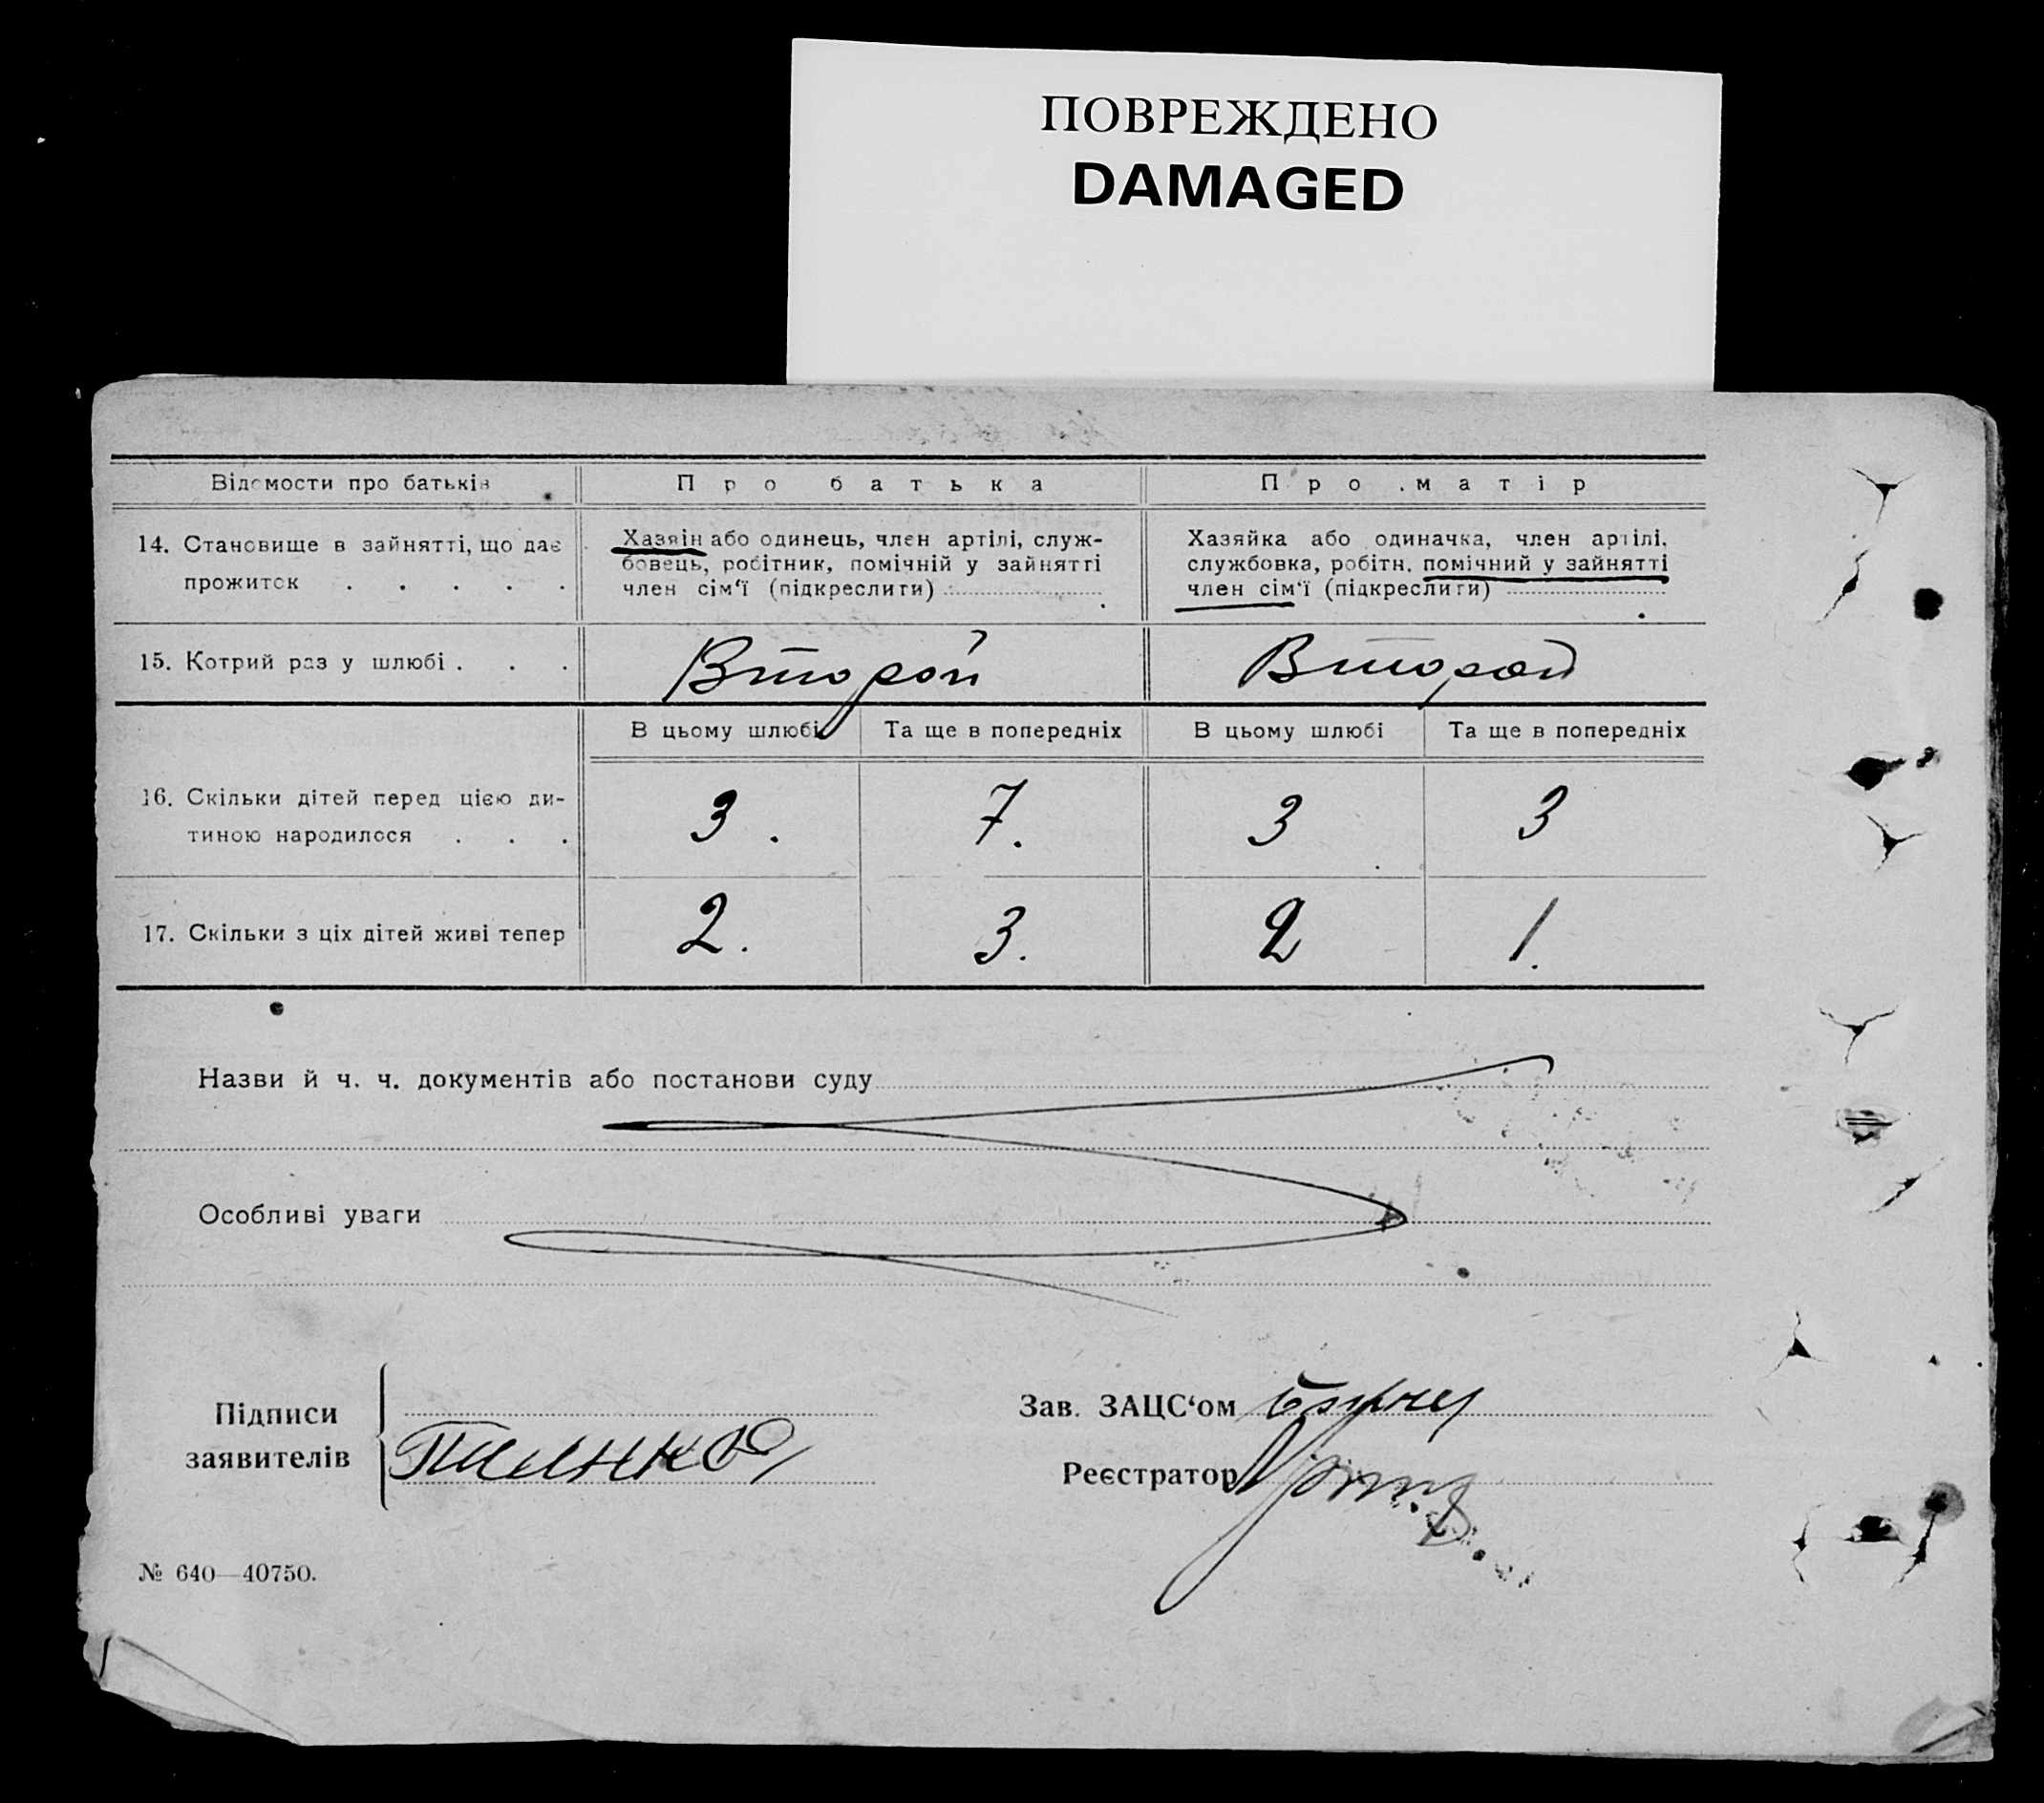 ПОВРЕЖДЕНО
DAMAGED
Відомости про батьків
Про батька
Про матір
14. Становище в зайнятті, що дає
прожиток . . . . .
Хазяін або одинець, член артілі, служ-
бовець, робітник, помічній у зайнятті
член сім‘ї (підкреслити)
Хазяйка або одиначка, член артілі,
службовка, робітн. помічний у зайнятті
член сім‘ї (підкреслити)
15. Котрий раз у шлюбі . . .
Второй
Второй
В цьому шлюбі
Та ще в попередніх
В цьому шлюбі
Та ще в попередніх
16. Скільки дітей перед цією ди-
тиною народилося . . .
3.
7.
3
3
17. Скільки з ціх дітей живі тепер
2.
3.
2
1.
Назви й ч. ч. документів або постанови суду
Особливі уваги
Підписи
заявителів
Зав. ЗАЦС‘ом
Реєстратор
№ 640—40750.